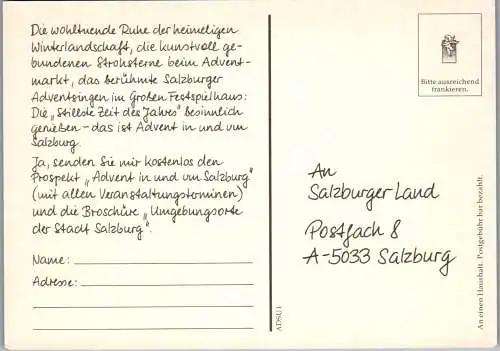 Die wohltuende Ruhe der heimeligen
Winterlandschaft, die kunstvoll ge-
bundenen Strohsterne beim Advent-
markt, das berühmte Salzburger
Adventsingen im Großen Festspielhaus:
Die „stillste Zeit des Jahres" besinnlich
genießen - das ist Advent in und um
Salzburg.
Ja, senden Sie mir kostenlos den
Prospekt „Advent in und um Salzburg"
(mit allen Veranstaltungsterminen)
und die Broschüre „Umgebungsorte
der Stadt Salzburg".
Name:
Adresse:
ADSU1
Bitte ausreichend
frankieren.
An
Salzburger Land
Postfach 8
A-5033 Salzburg
An einen Haushalt. Postgebühr bar bezahlt.